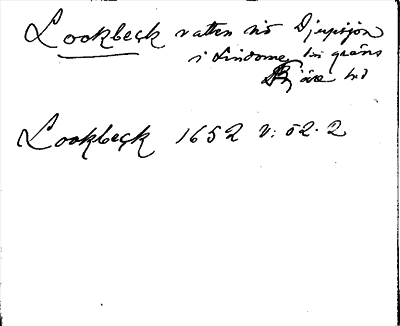 Lookbeck vatten vid Djupsjön
i Lindome, vid gräns
Lookbeck 1652 v: 52.2